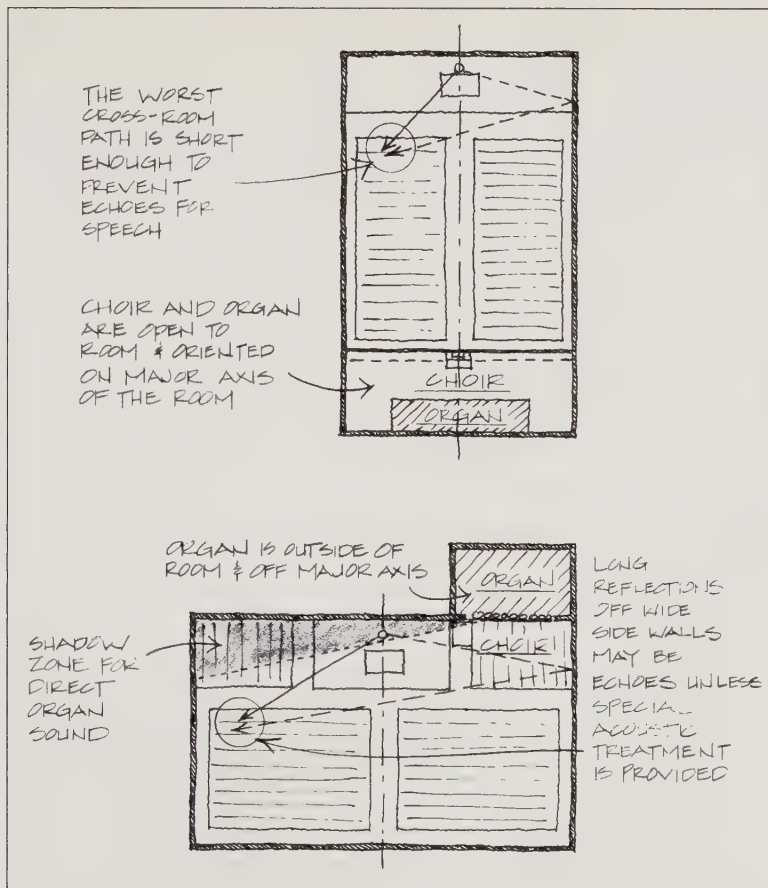 THE WORST
CROSS-ROOM
PATH IS SHORT
ENOUGH TO
PREVENT
ECHOES FOR
SPEECH
CHOIR AND ORGAN
ARE OPEN TO
ROOM & ORIENTED
ON MAJOR AXIS
OF THE ROOM
CHOIR
ORGAN
ORGAN IS OUTSIDE OF
ROOM & OFF MAJOR AXIS
ORGAN
CHOIR
SHADOW
ZONE FOR
DIRECT
ORGAN
SOUND
LONG
REFLECTIONS
OFF WIDE
SIDE WALLS
MAY BE
ECHOES UNLESS
SPECIAL
ACOUSTIC
TREATMENT
IS PROVIDED